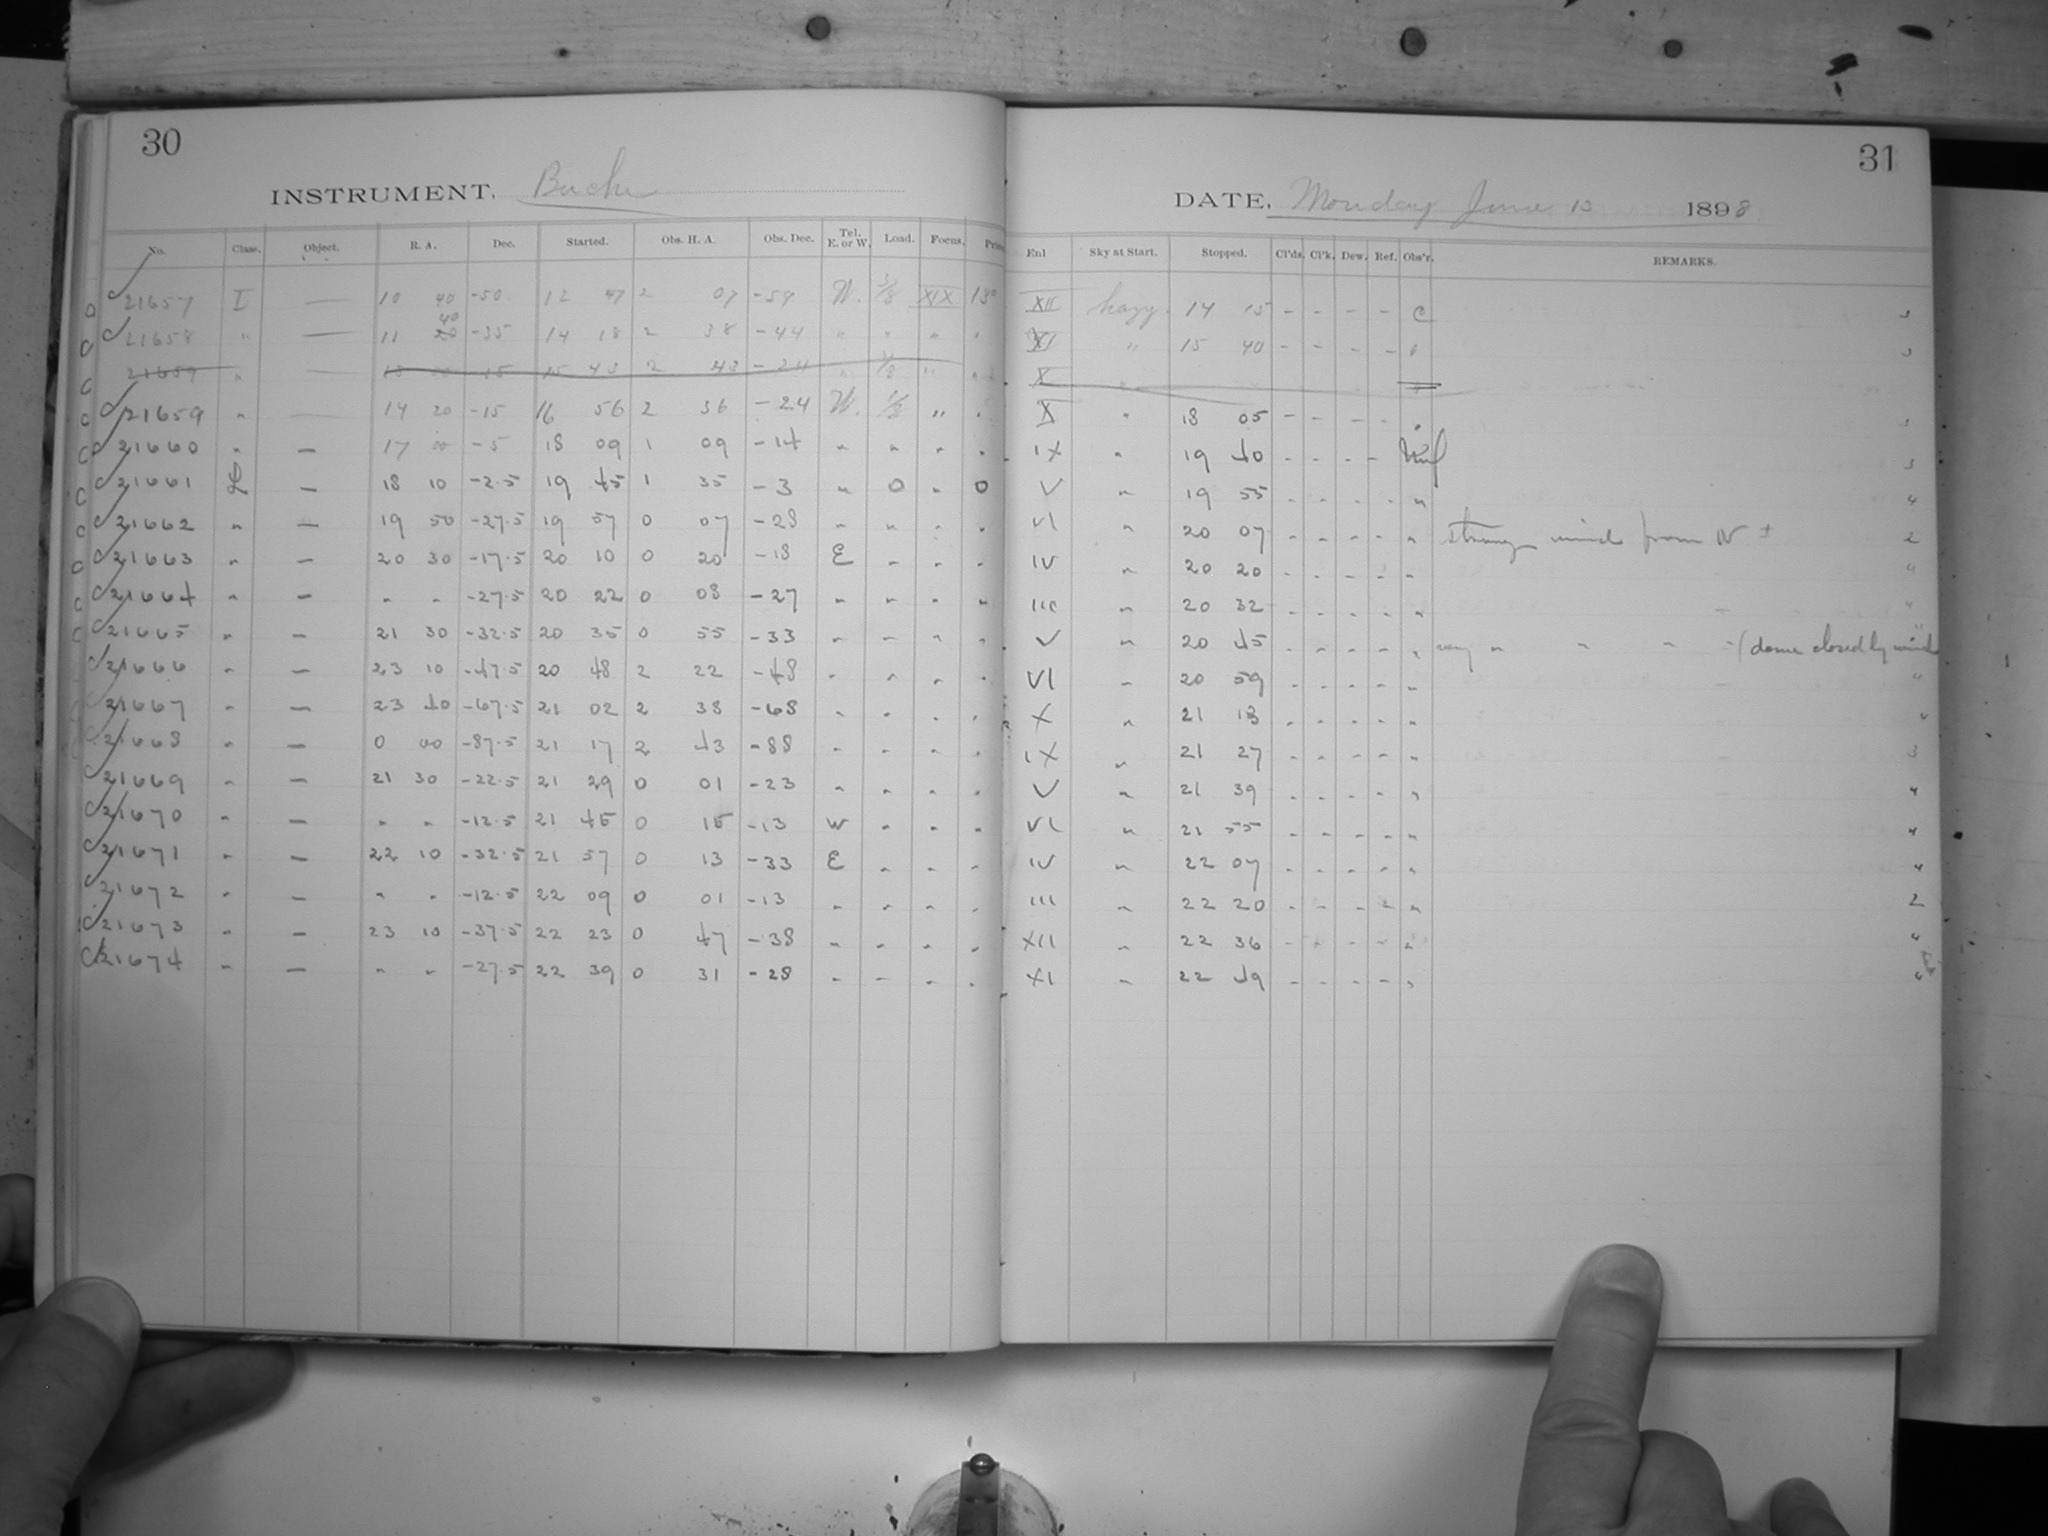 30
INSTRUMENT. Bache
No. Class. Object. R. A. Dec. Started. Obs. H. A. Obs. Dec. Tel. E. or W. Load. Focus.
21657 I — 10 40 -50 12 47 2 07 -59 W. XIX 13°
21658 " — 11 40 -35 14 18 2 38 -44 " " " "
21659 " — 15 43 2 43 -24 "
21659 " — 14 20 -15 16 56 2 36 -24 W. 1/8 " "
21660 " — 17 00 -5 18 09 1 09 -14 " " " "
21661 — 18 10 -2.5 19 45 1 35 -3 " 0 " 0
21662 " — 19 50 -27.5 19 57 0 07 -28 " " " "
21663 " — 20 30 -17.5 20 10 0 20 -18 E " " "
21664 " — " " -27.5 20 22 0 08 -27 " " " "
21665 " — 21 30 -32.5 20 35 0 55 -33 " " " "
21666 " — 23 10 -47.5 20 48 2 22 -48 " " " "
21667 " — 23 40 -67.5 21 02 2 38 -68 " " " "
21668 " — 0 00 -87.5 21 17 2 43 -88 " " " "
21669 " — 21 30 -22.5 21 29 0 01 -23 " " " "
21670 " — " " -12.5 21 45 0 15 -13 W " " "
21671 " — 22 10 -32.5 21 57 0 13 -33 E " " "
21672 " — " " -12.5 22 09 0 01 -13 " " " "
21673 " — 23 10 -37.5 22 23 0 47 -38 " " " "
21674 " — " " -27.5 22 39 0 31 -28 " " " "
31
DATE, Monday June 13 1898
Enl Sky at Start. Stopped. Cl'ds. Cl'k. Dew. Ref. Obs'r. REMARKS.
XII hazy. 14 15 - - - - C 3
XI " 15 40 - - - - " 3
X "
X " 18 05 - - - - " 3
IX " 19 40 - - - - 3
V " 19 55 - - - - " 4
VI " 20 07 - - - - " strong wind from N ± 2
IV " 20 20 - - - - " "
III " 20 32 - - - - " "
V " 20 45 - - - - " very " " " - (dome closed by wind "
VI " 20 59 - - - - " "
X " 21 13 - - - - " "
IX " 21 27 - - - - " 3
V " 21 39 - - - - " 4
VI " 21 55 - - - - " 4
IV " 22 07 - - - - " 4
III " 22 20 - - - - " 2
XII " 22 36 - - - - " "
XI " 22 49 - - - - " "